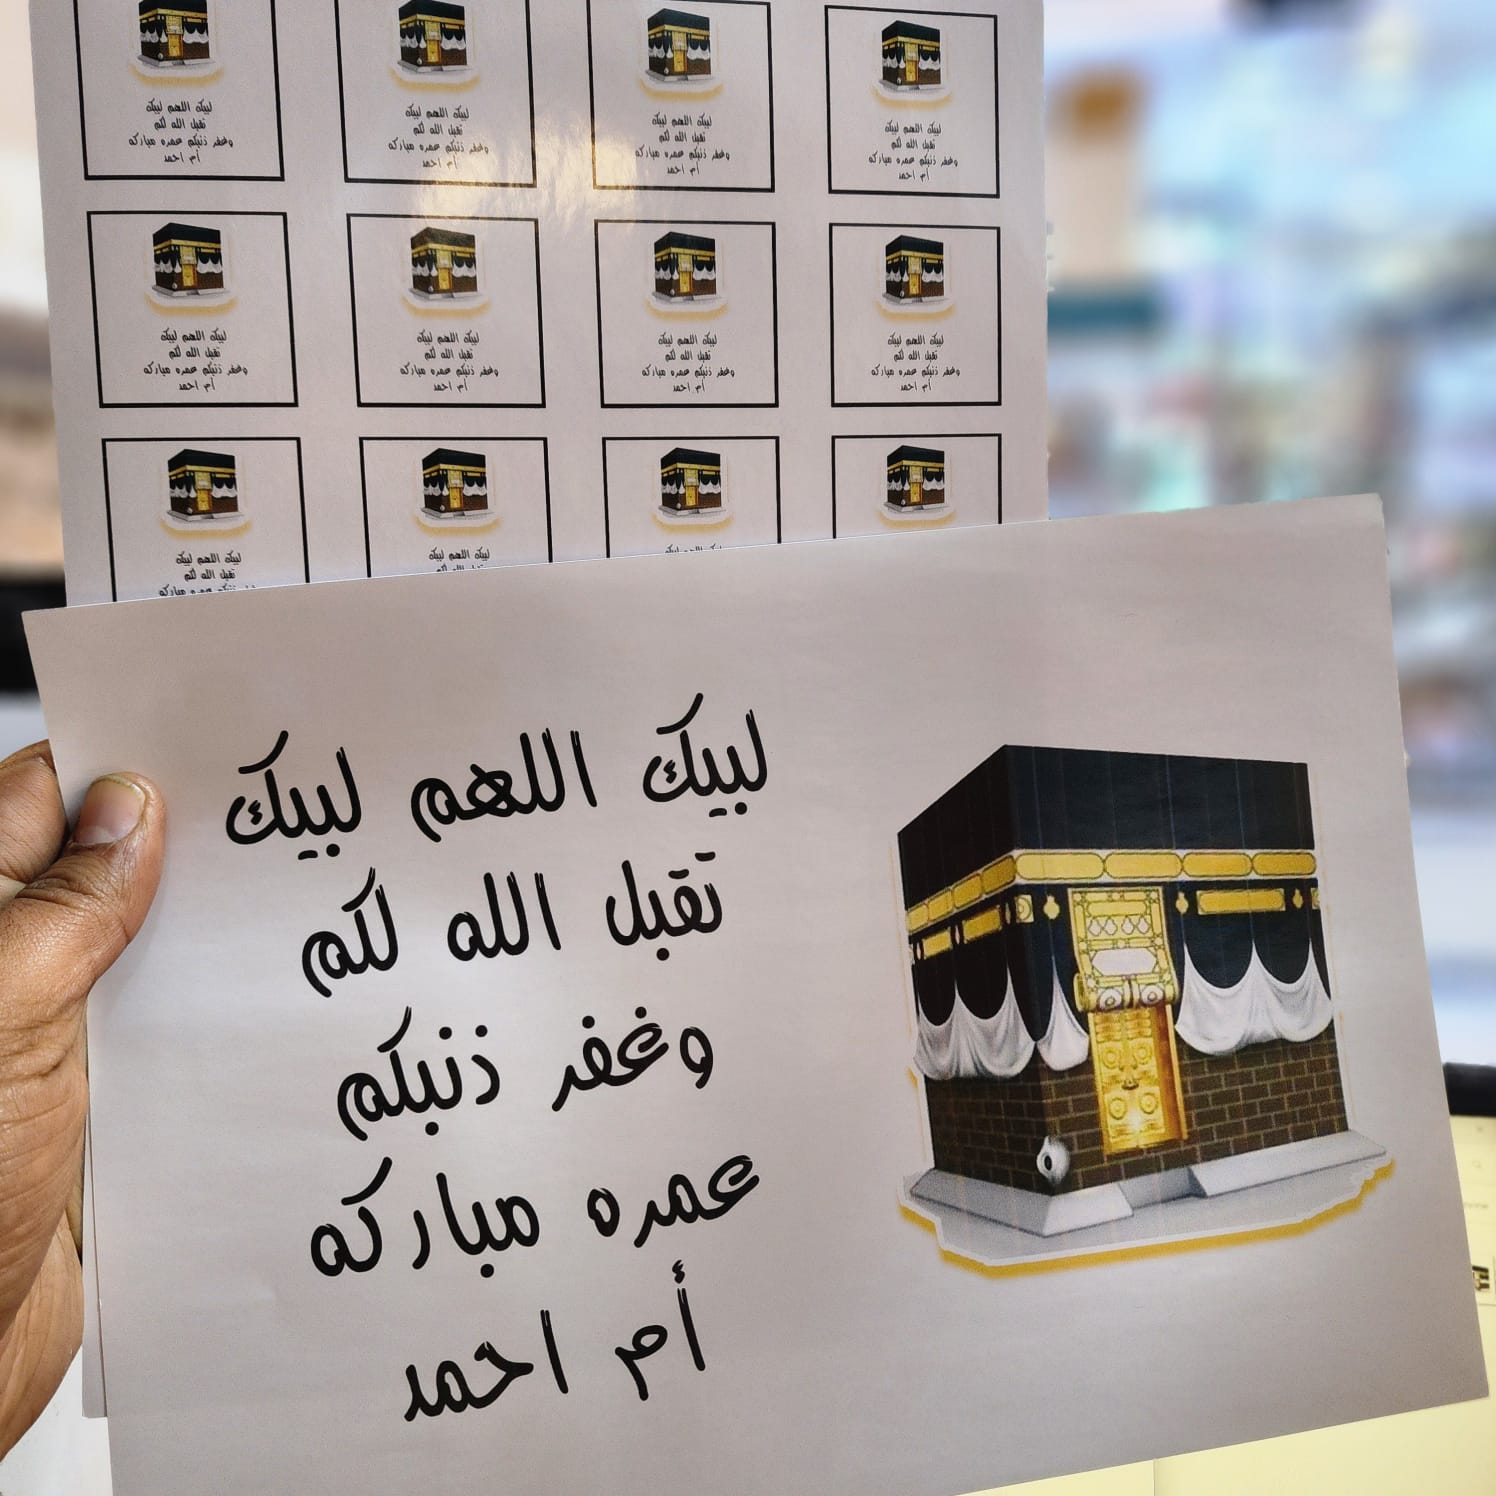 لبيك اللهم لبيك
تقبل الله لكم
وغفر ذنبكم عمره مباركه
أم احمد
لبيك اللهم لبيك
تقبل الله لكم
وغفر ذنبكم عمره مباركه
أم احمد
لبيك اللهم لبيك
تقبل الله لكم
وغفر ذنبكم عمره مباركه
أم احمد
لبيك اللهم لبيك
تقبل الله لكم
وغفر ذنبكم عمره مباركه
أم احمد
لبيك اللهم لبيك
تقبل الله لكم
وغفر ذنبكم عمره مباركه
أم احمد
لبيك اللهم لبيك
تقبل الله لكم
وغفر ذنبكم عمره مباركه
أم احمد
لبيك اللهم لبيك
تقبل الله لكم
وغفر ذنبكم عمره مباركه
أم احمد
لبيك اللهم لبيك
تقبل الله لكم
وغفر ذنبكم عمره مباركه
أم احمد
لبيك اللهم لبيك
لبيك اللهم لبيك
تقبل الله لكم
لبيك اللهم لبيك
تقبل الله لكم
وغفر ذنبكم
عمره مباركه
أم احمد